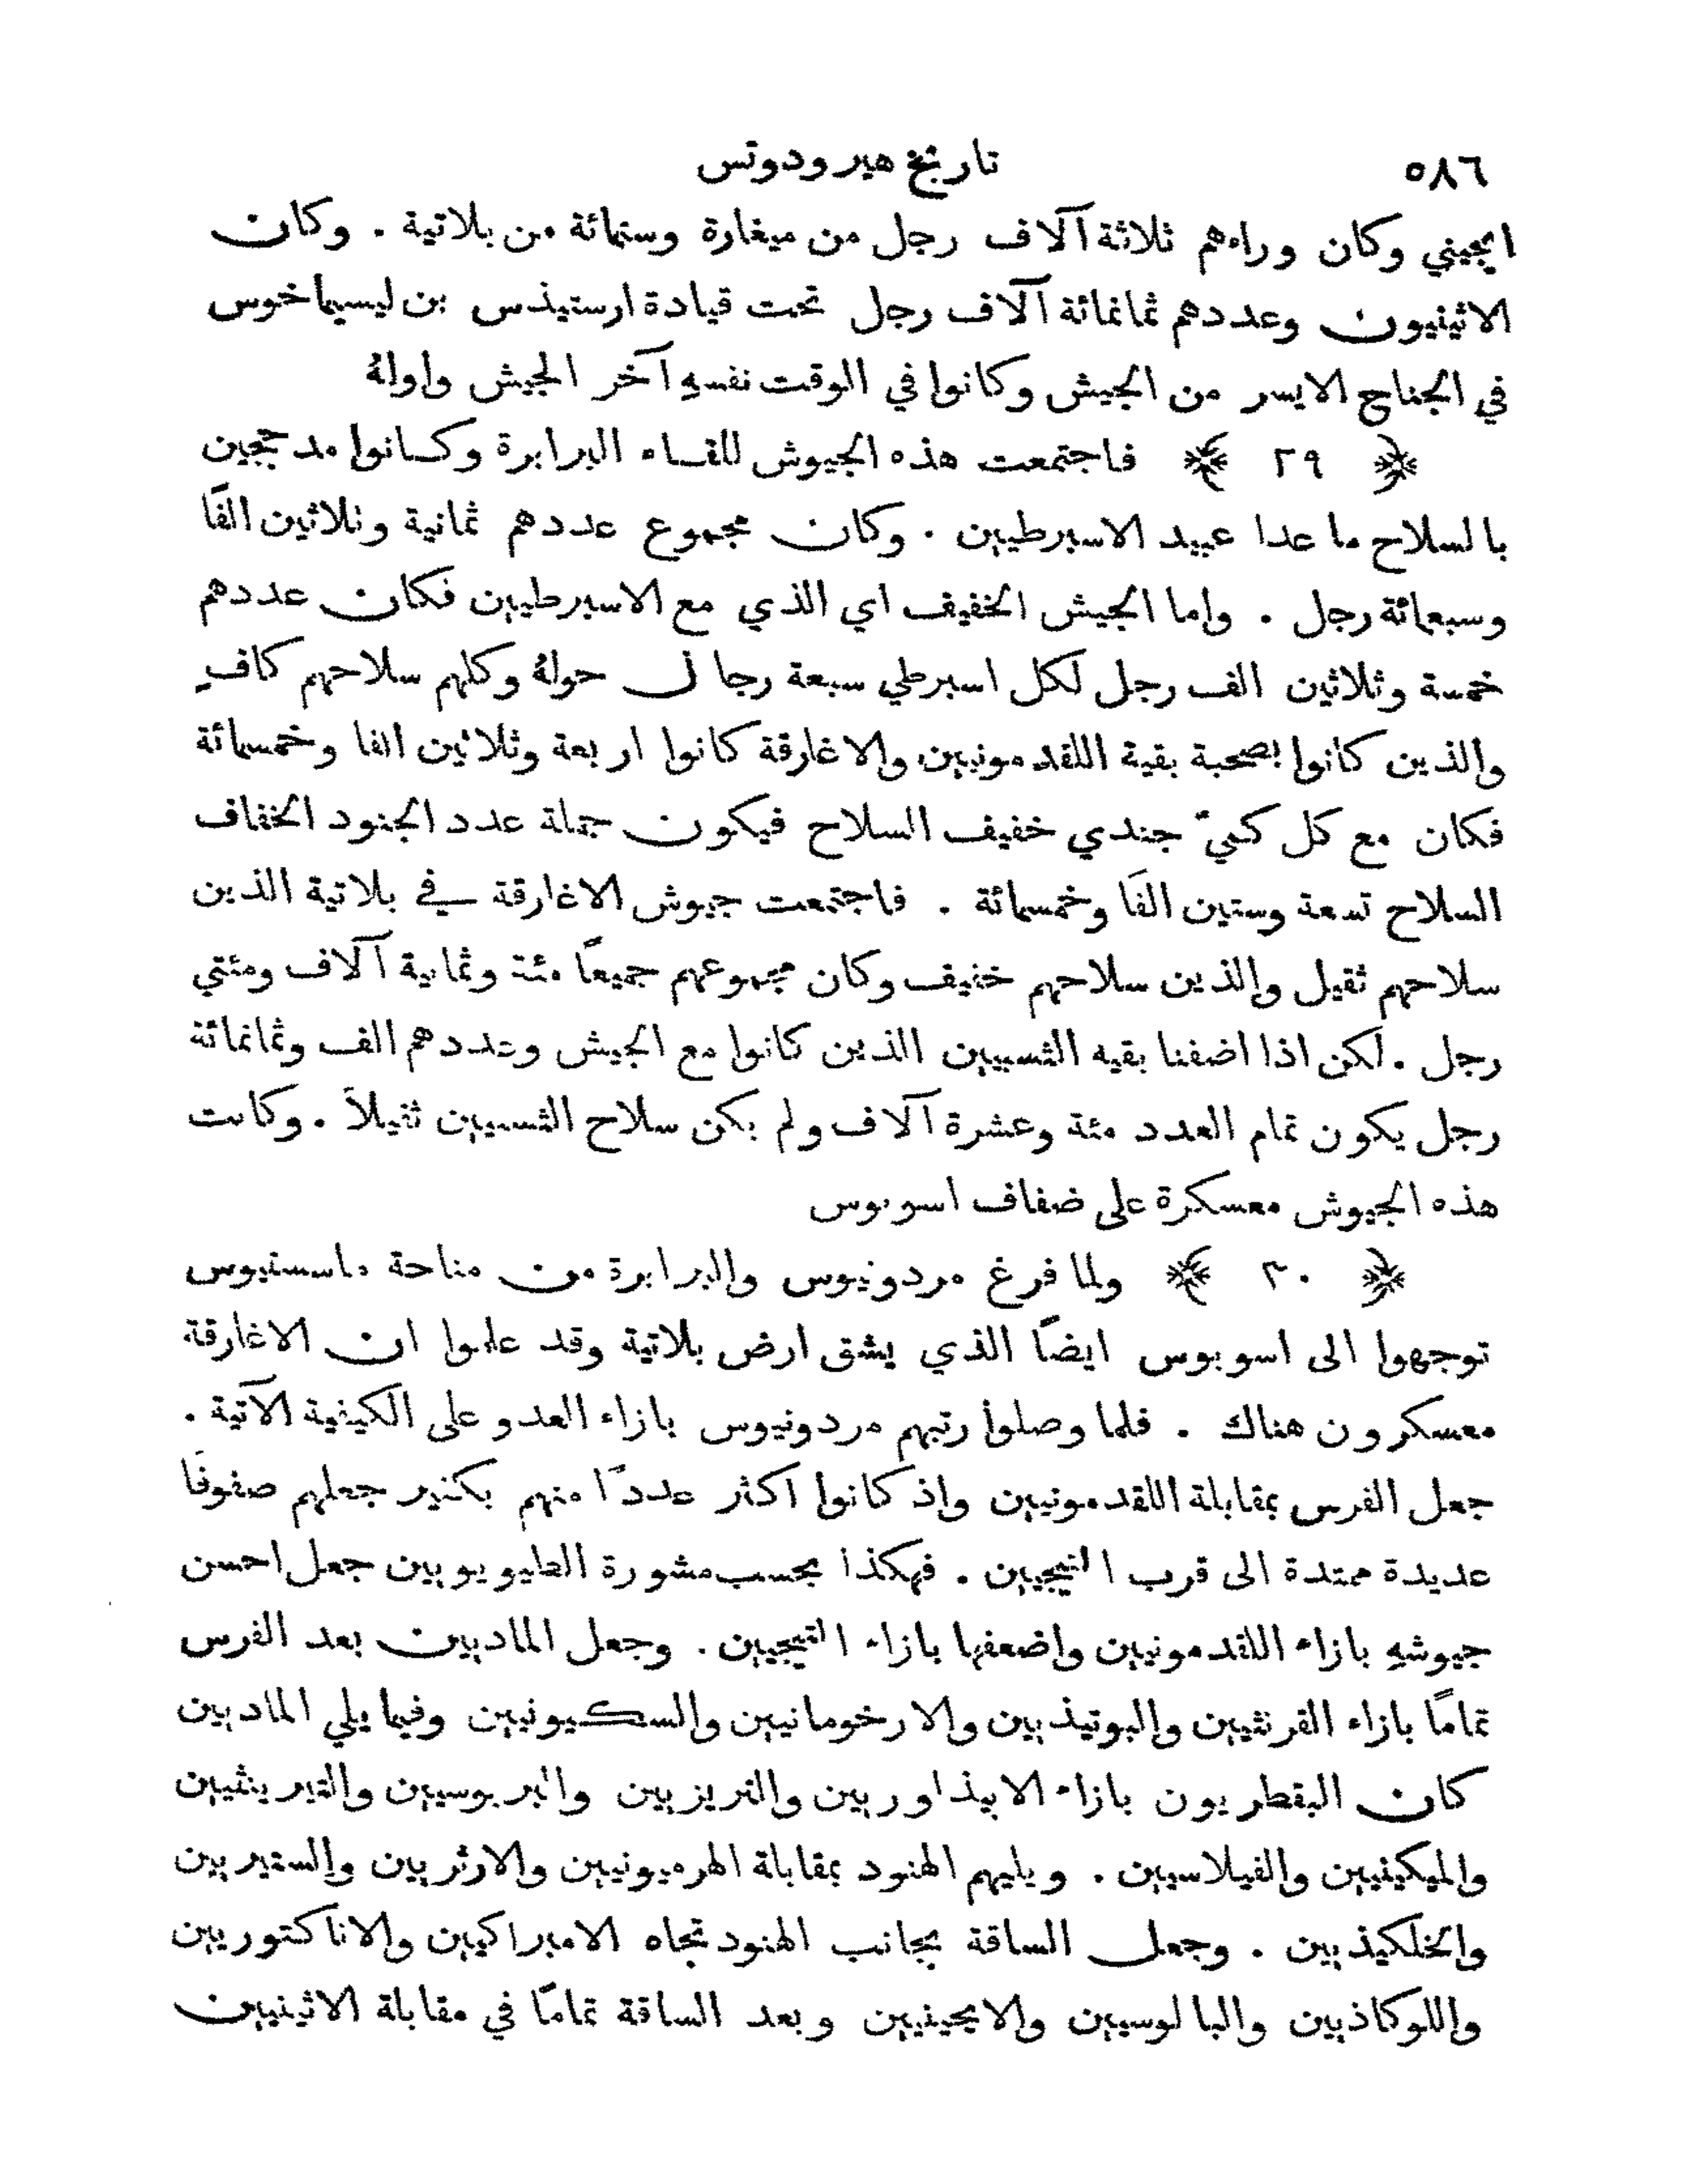 ٥٨٦ تاريخ هيرودوتس
ايجيني وكان وراءهم ثلاثة آلاف رجل من ميغارة وستمائة من بلاتية . وكان
الاثينيون وعددهم ثمانمائة آلاف رجل تحت قيادة ارستيذس بن ليسيماخوس
في الجناح الايسر من الجيش وكانوا في الوقت نفسهِ آخر الجيش واولهُ
﴿ ٢٩ ﴾ فاجتمعت هذه الجيوش للقاء البرابرة وكانوا مدججين
بالسلاح ما عدا عبيد الاسبرطيين . وكان مجموع عددهم ثمانية وثلاثين الفًا
وسبعمائة رجل . واما الجيش الخفيف اي الذي مع الاسبرطيين فكان عددهم
خمسة وثلاثين الف رجل لكل اسبرطي سبعة رجال حولهُ وكلهم سلاحهم كافٍ
والذين كانوا بصحبة بقية اللقدمونيين والاغارقة كانوا اربعة وثلاثين الفا وخمسمائة
فكان مع كل كميّ جندي خفيف السلاح فيكون جملة عدد الجنود الخفاف
السلاح تسعة وستين الفًا وخمسمائة . فاجتمعت جيوش الاغارقة في بلاتية الذين
سلاحهم ثقيل والذين سلاحهم خفيف وكان مجموعهم جميعًا مئة وثمانية آلاف ومئتي
رجل . لكن اذا اضفنا بقيه الثسبيين الذين كانوا مع الجيش وعددهم الف وثمانمائة
رجل يكون تمام العدد مئة وعشرة آلاف ولم يكن سلاح الثسبيين ثقيلاً . وكانت
هذه الجيوش معسكرة على ضفاف اسوبوس
﴿ ٣٠ ﴾ ولما فرغ مردونيوس والبرابرة من مناحة ماسستيوس
توجهوا الى اسوبوس ايضًا الذي يشق ارض بلاتية وقد علموا ان الاغارقة
معسكرون هناك . فلما وصلوا رتبهم مردونيوس بازاء العدو على الكيفية الآتية .
جعل الفرس بمقابلة اللقدمونيين واذ كانوا اكثر عددًا منهم بكثير جعلهم صفوفًا
عديدة ممتدة الى قرب التيجيين . فهكذا بحسب مشورة الطيويوبين جعل احسن
جيوشهِ بازاء اللقدمونيين واضعفها بازاء التيجيين . وجعل الماديين بعد الفرس
تمامًا بازاء القرنثيين والبوتيذيين والارخومانيين والسكيونيين وفيما يلي الماديين
كان البقطريون بازاء الابيذاوريين والتريزيين والبريوسيين والتيرينثيين
والميكينيين والفيلاسيين . ويليهم الهنود بمقابلة الهرميونيين والارثريين والستيريين
والخلكيذيين . وجعل الساقة بجانب الهنود تجاه الامبراكيين والاناكتوريين
واللوكاذيين والبالوسيين والايجينيين وبعد الساقة تمامًا في مقابلة الاثينيين